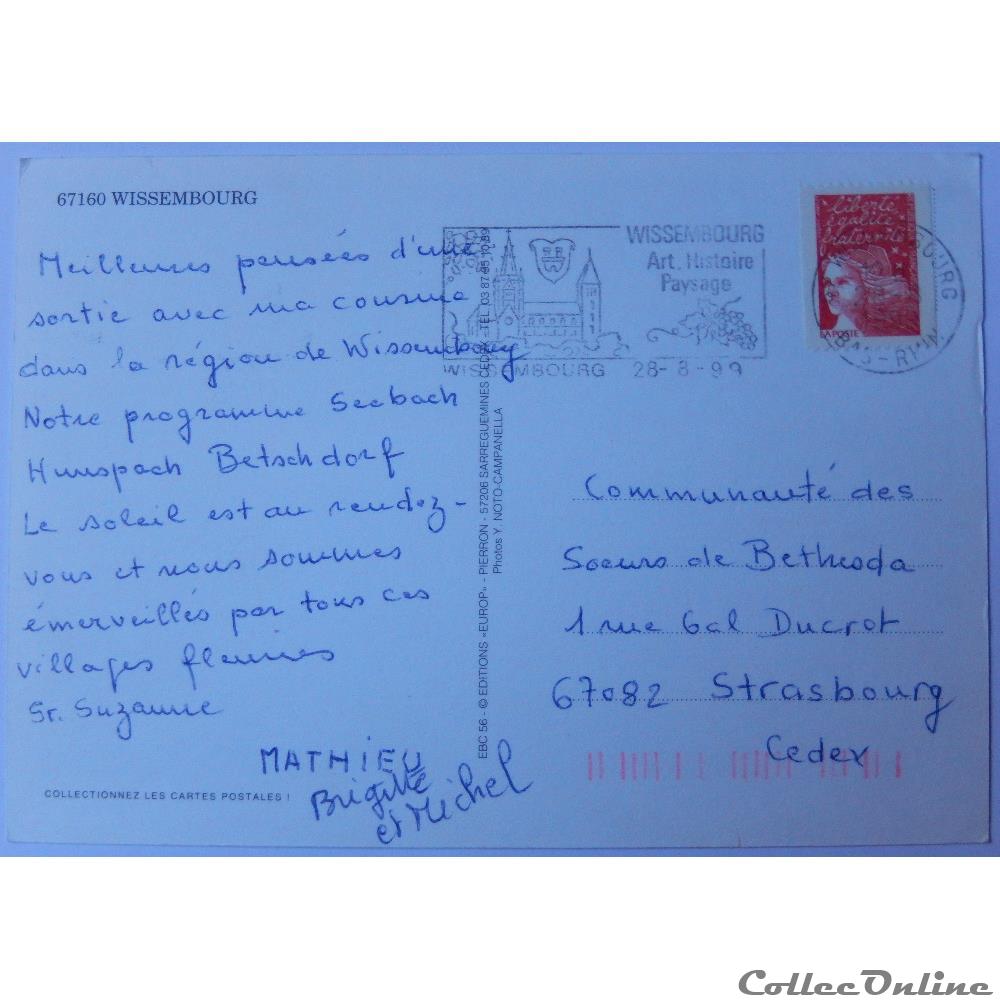 67160 WISSEMBOURG
Meilleures pensées d'une
sortie avec ma cousine
dans la région de Wissembourg
Notre programme Seebach
Hunspach Betschdorf
Le soleil est au rendez-
vous et nous sommes
émerveillés par tous ces
villages fleuries
Sr. Suzanne
MATHIEU
Brigitte
et Michel
COLLECTIONNEZ LES CARTES POSTALES !
EBC 56 - © EDITIONS «EUROP» - PIERRON - 57206 SARREGUEMINES CEDEX - TEL. 03 87 95 10 89
Photos Y. NOTO-CAMPANELLA
WISSEMBOURG
Art, Histoire
Paysage
WISSEMBOURG 28-8-99
liberté
égalité
fraternité
LA POSTE
BAS-RHIN
Communauté des
Soeurs de Bethesda
1 rue Gal Ducrot
67082 Strasbourg
Cedex
CollecOnline